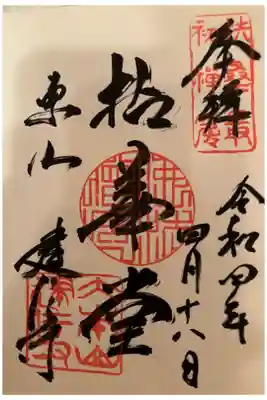 奉拝
令和四年
四月十八日
拈華堂
東山
建仁寺